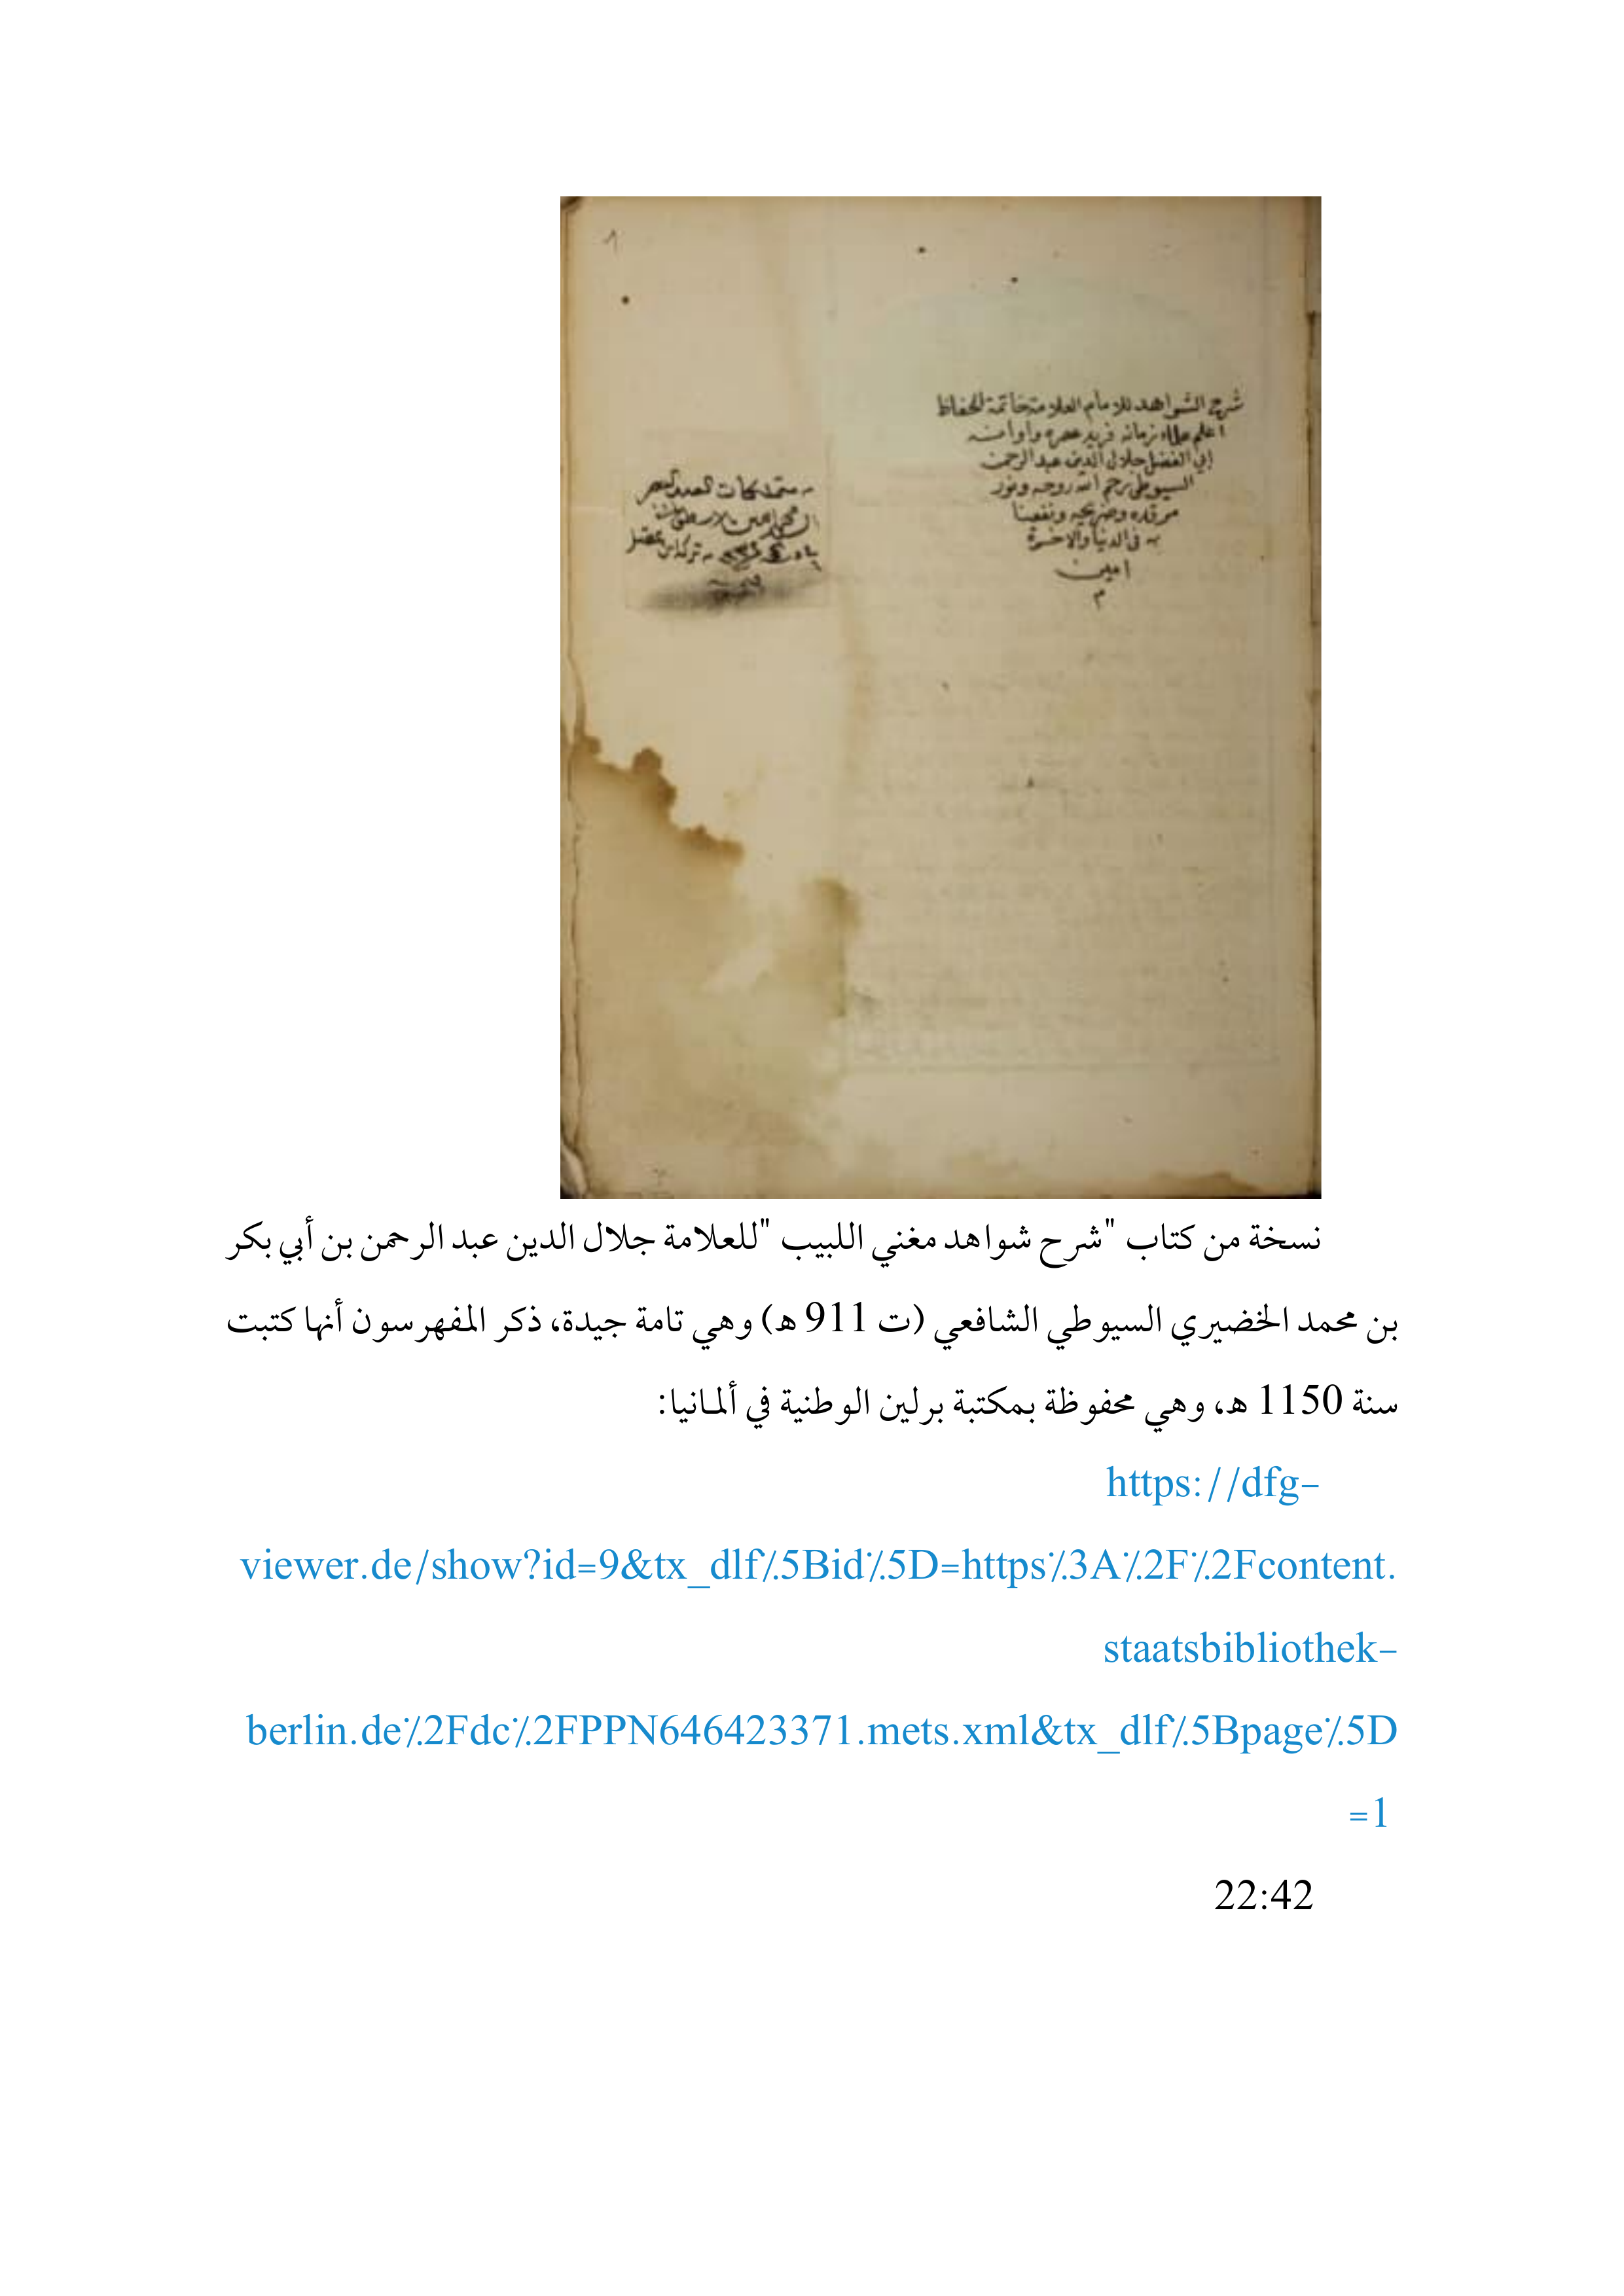 شرح الشواهد للامام العلامة خاتمة الحفاظ
اعلم علماء زمانه فريد عصره واوانه
ابي الفضل جلال الدين عبد الرحمن
السيوطي رحم الله روحه ونور
مرقده وضريحه ونفعنا
به في الدنيا والاخرة
امين
م
من متملكات
نسخة من كتاب "شرح شواهد مغني اللبيب "للعلامة جلال الدين عبد الرحمن بن أبي بكر
بن محمد الخضيري السيوطي الشافعي (ت 911 ه) وهي تامة جيدة، ذكر المفهرسون أنها كتبت
سنة 1150 ه، وهي محفوظة بمكتبة برلين الوطنية في ألمـانيا:
https://dfg-
viewer.de/show?id=9&tx_dlf٪5Bid٪5D=https٪3A٪2F٪2Fcontent.
staatsbibliothek-
berlin.de٪2Fdc٪2FPPN646423371.mets.xml&tx_dlf٪5Bpage٪5D
=1
22:42